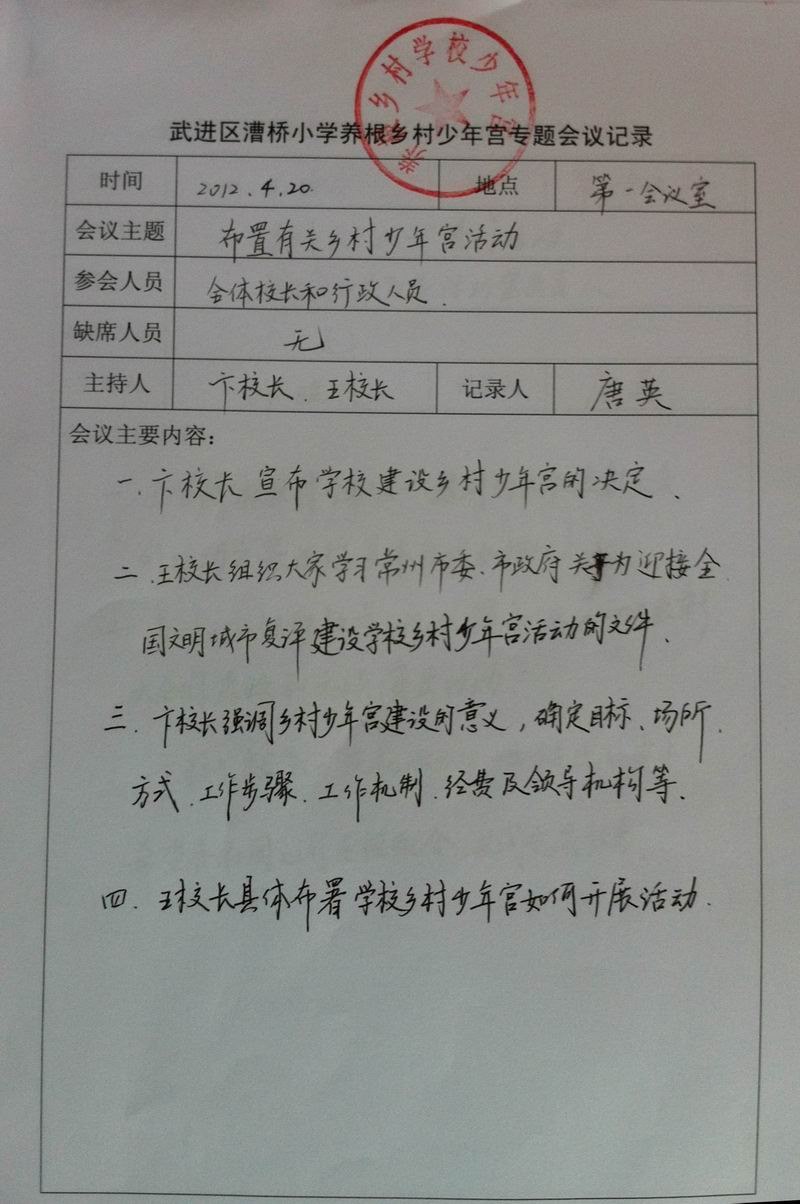 养根乡村学校少年宫
武进区漕桥小学养根乡村少年宫专题会议记录
时间 2012.4.20. 地点 第一会议室
会议主题 布置有关乡村少年宫活动
参会人员 全体校长和行政人员.
缺席人员 无
主持人 卞校长、王校长 记录人 唐英
会议主要内容：
一.卞校长宣布学校建设乡村少年宫的决定、
二.王校长组织大家学习常州市委、市政府关于为迎接全
国文明城市复评建设学校乡村少年宫活动的文件、
三.卞校长强调乡村少年宫建设的意义，确定目标、场所、
方式、工作步骤、工作机制、经费及领导机构等、
四.王校长具体布署学校乡村少年宫如何开展活动.